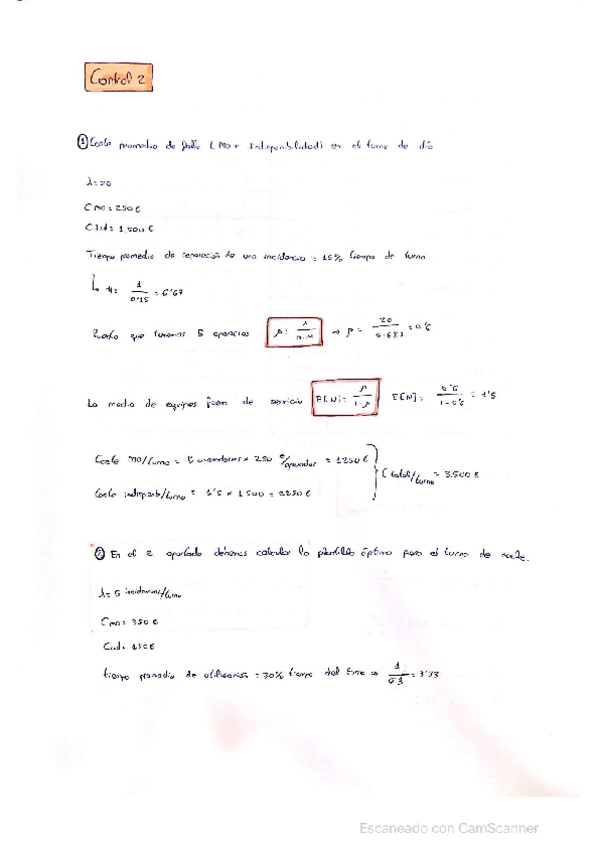 Control 2
① Coste promedio de fallo (MO + indisponibilidad) en el turno de día
λ = 20
Cmo = 250 €
Cind = 1.500 €
Tiempo promedio de reparación de una incidencia = 15% tiempo de turno
↳ μ = 1/0'15 = 6'67
Puesto que tenemos 5 operarios ρ = λ/n·μ → ρ = 20/5·6'67 = 0'6
La media de equipos fuera de servicio E[N] = ρ/1-ρ E[N] = 0'6/1-0'6 = 1'5
Coste MO/turno = 5 operadores × 250 €/operador = 1250 €
C total/turno = 3.500 €
Coste indisponib/turno = 1'5 × 1500 = 2250 €
② En el 2 apartado debemos calcular la plantilla óptima para el turno de noche.
λ = 5 incidencias/turno
Cmo = 350 €
Cind =
tiempo promedio de = 30% tiempo del turno ⇒ 1/0'3 = 3'33
Escaneado con CamScanner